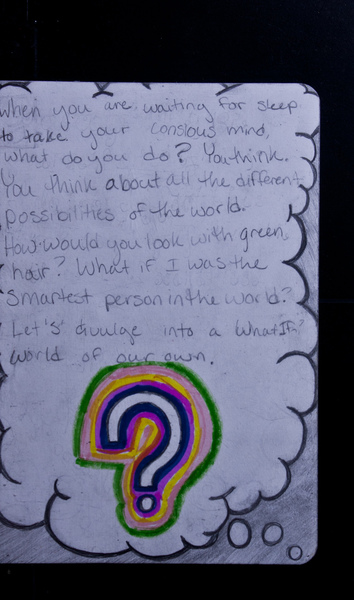 When you are waiting for sleep
to take your conscious mind,
what do you do? You think.
You think about all the different
possibilities of the world.
How would you look with green
hair? What if I was the
smartest person in the world?
Let's divulge into a What If?
world of our own.